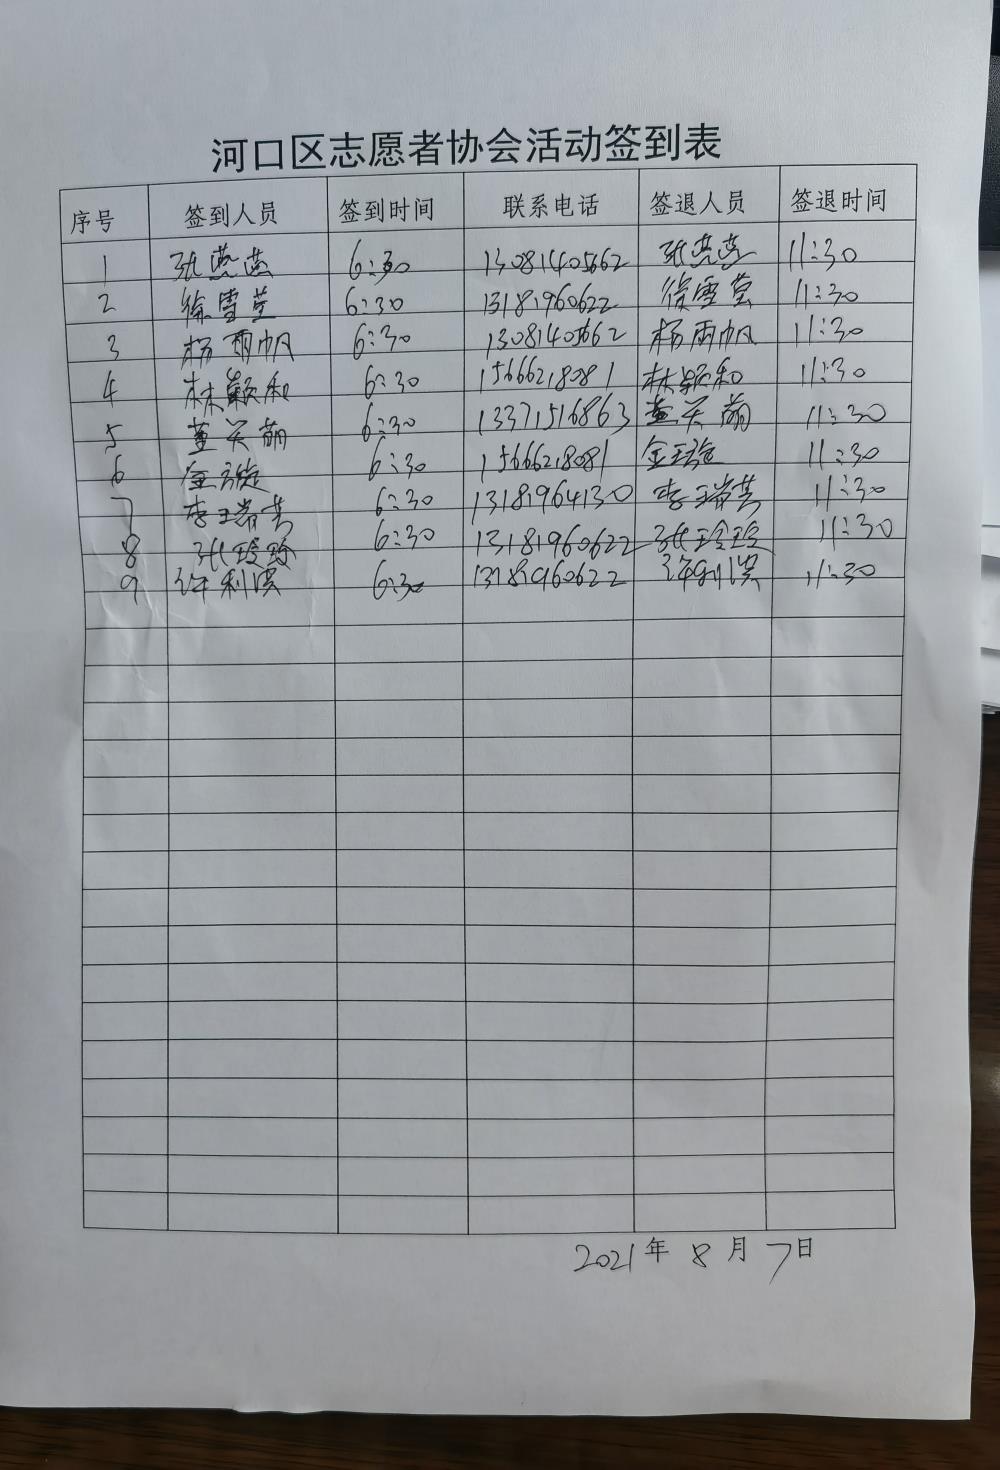 河口区志愿者协会活动签到表
序号 签到人员 签到时间 联系电话 签退人员 签退时间
1 张燕燕 6:30 13081405662 张燕燕 11:30
2 徐雪莹 6:30 13181960622 徐雪莹 11:30
3 杨雨帆 6:30 13081405662 杨雨帆 11:30
4 林颖和 6:30 15666218081 林颖和 11:30
5 董关萌 6:30 13371516863 董关萌 11:30
6 金璇 6:30 15666218081 金璇 11:30
7 李瑞其 6:30 13181964130 李瑞其 11:30
8 张玲玲 6:30 13181960622 张玲玲 11:30
9 许利滨 6:30 13181960622 许利滨 11:30
2021年 8 月 7日